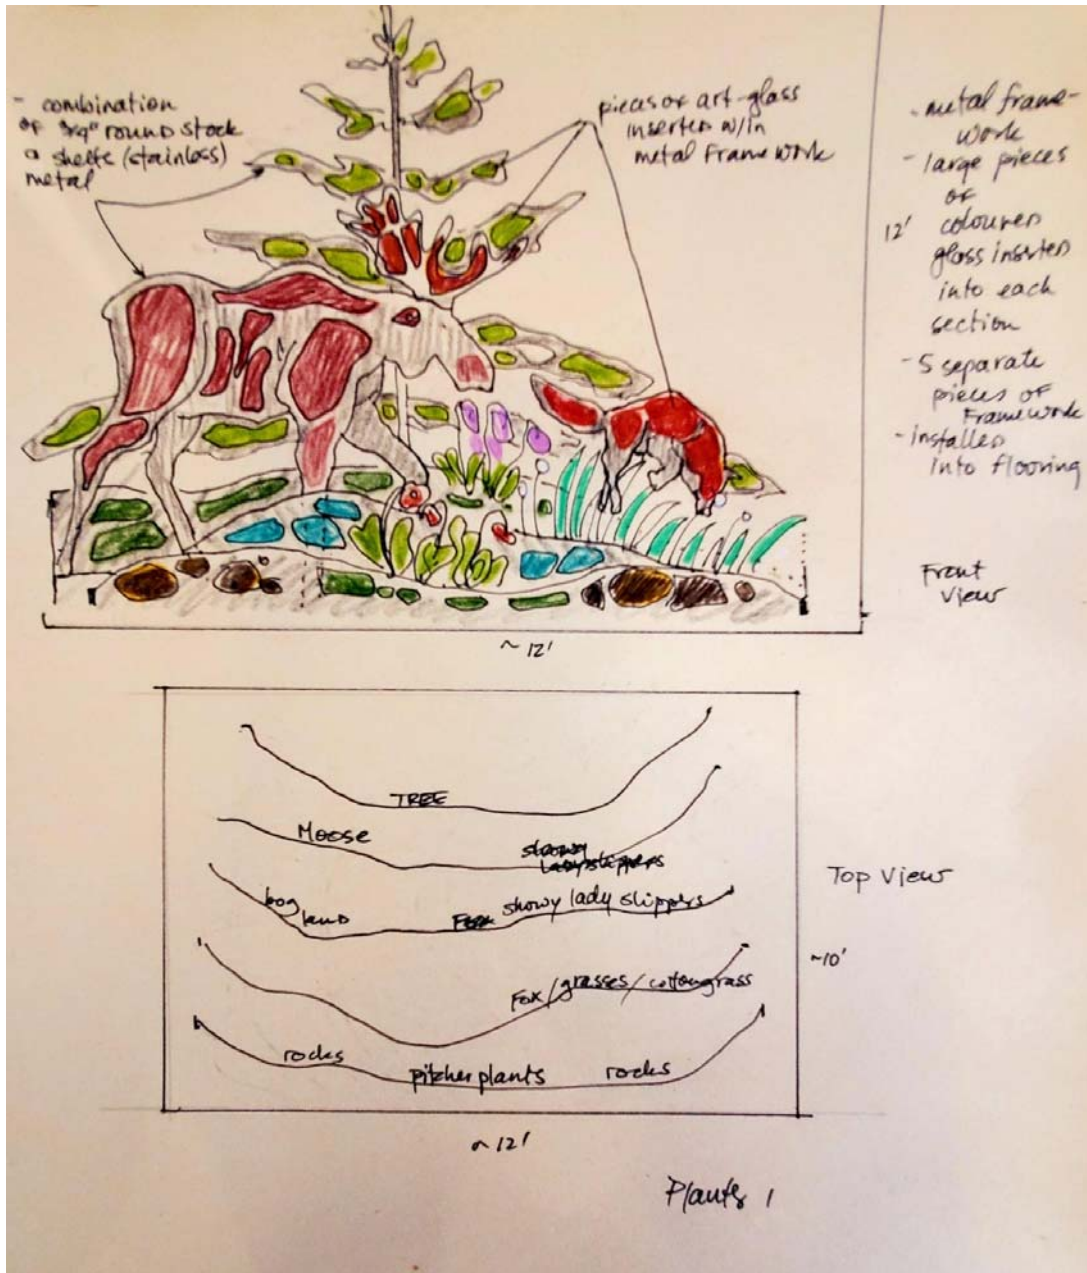 - combination
of 3/4" round stock
a sheets (stainless)
metal
pieces of art-glass
inserted w/in
metal Framework
- metal frame-
work
- large pieces
of
12' coloured
glass inserted
into each
section
- 5 separate
pieces of
Framework
- installed
into flooring
Front
View
~ 12'
TREE
Moose
showy
ladyslippers
bog
land
Fox showy lady slippers
Top View
~10'
Fox/grasses/cottongrass
rocks
pitcher plants
rocks
~ 12'
Plants 1